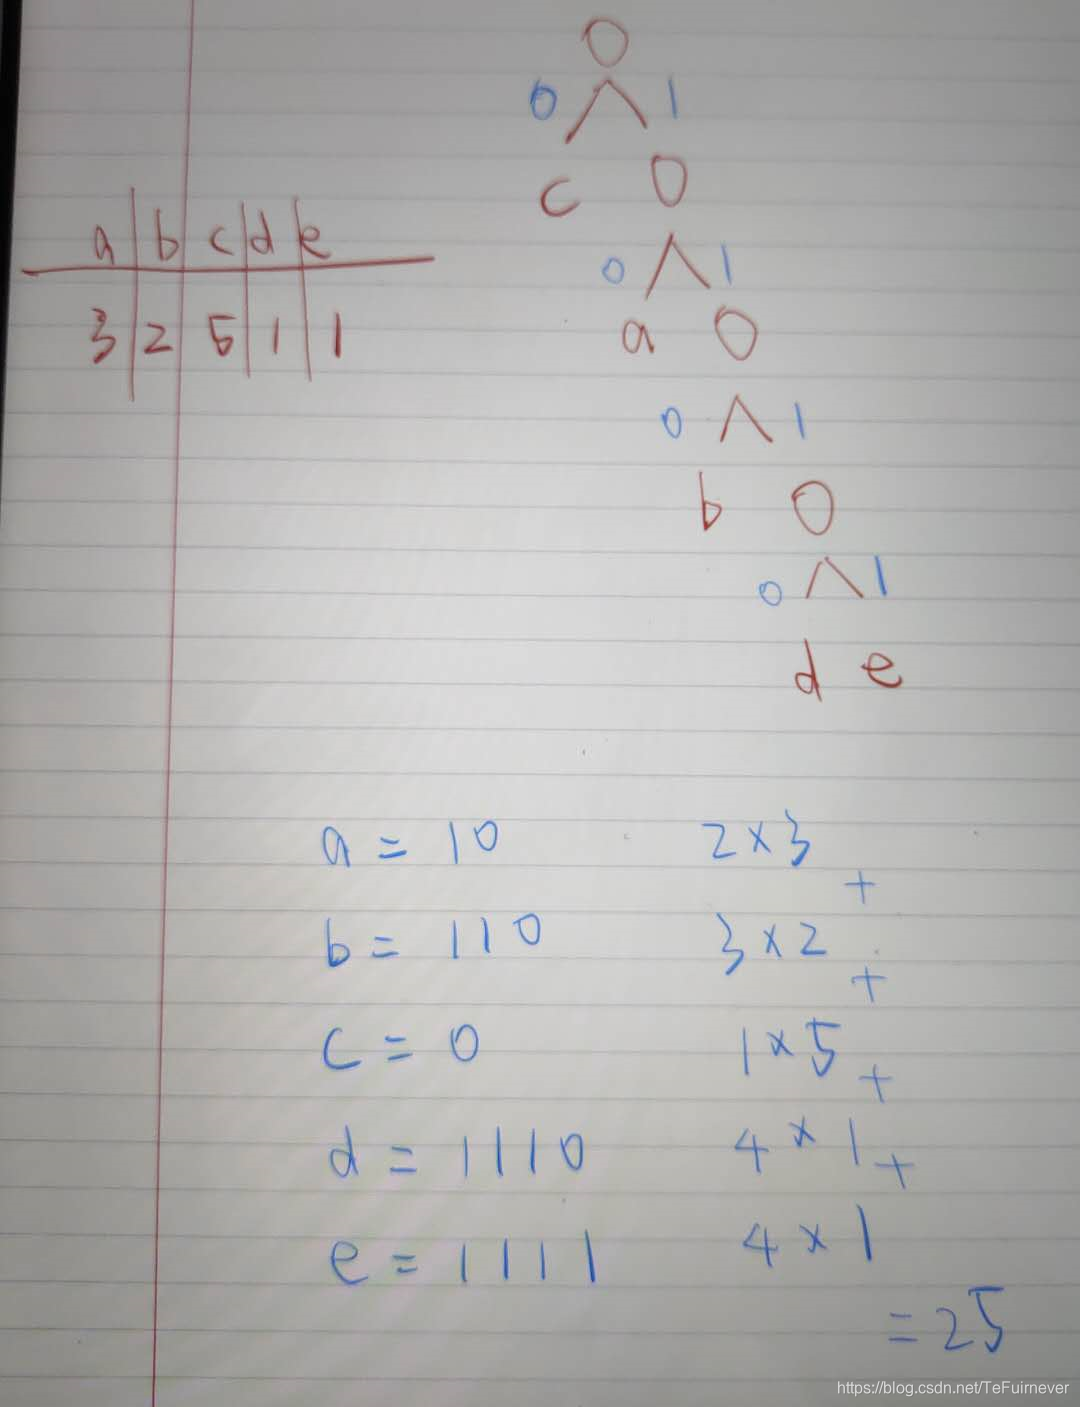 O
0 1
c O
0 1
a O
0 1
b O
0 1
d e
a b c d e
3 2 5 1 1
a = 10 2 × 3
+
b = 110 3 × 2
+
c = 0 1 × 5
+
d = 1110 4 × 1
+
e = 1111 4 × 1
= 25
https://blog.csdn.net/TeFuirnever